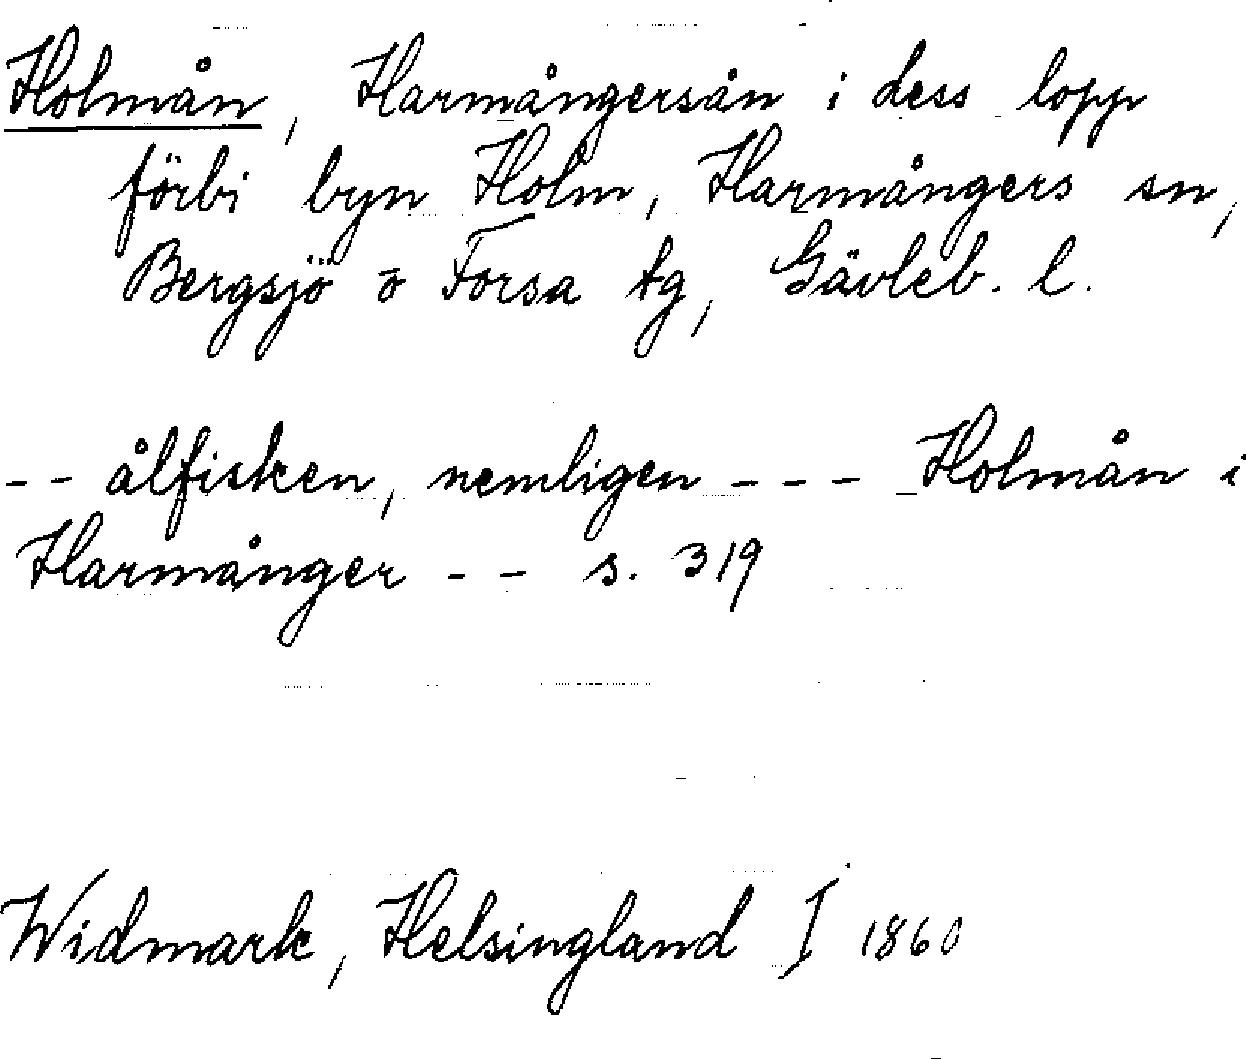 Holmån, Harmångersån i dess lopp
förbi byn Holm, Harmångers sn,
Bergsjö o Forsa tg, Gävleb. l.
-- ålfisken, nemligen --- Holmån i
Harmånger -- s. 319
Widmark, Helsingland I 1860